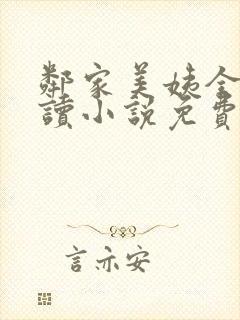 鄰家美姨全
讀小說免費
言亦安